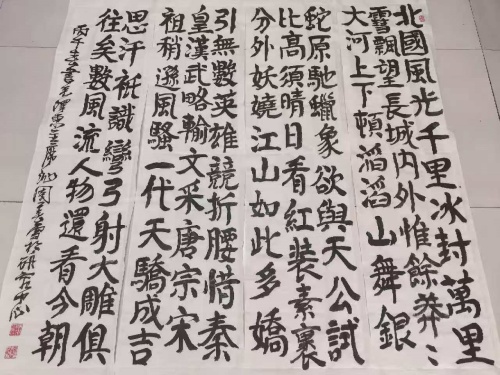 北國風光千里冰封萬里
雪飄望長城内外惟餘莽〻
大河上下頓滔滔山舞銀
蛇原馳蠟象欲與天公試
比高須晴日看紅裝素裹
分外妖嬈江山如此多嬌
引無數英雄競折腰惜秦
皇漢武略輸文采唐宗宋
祖稍遜風騷一代天驕成吉
思汗祇識彎弓射大雕俱
往矣數風流人物還看今朝
丙午書毛澤東主席